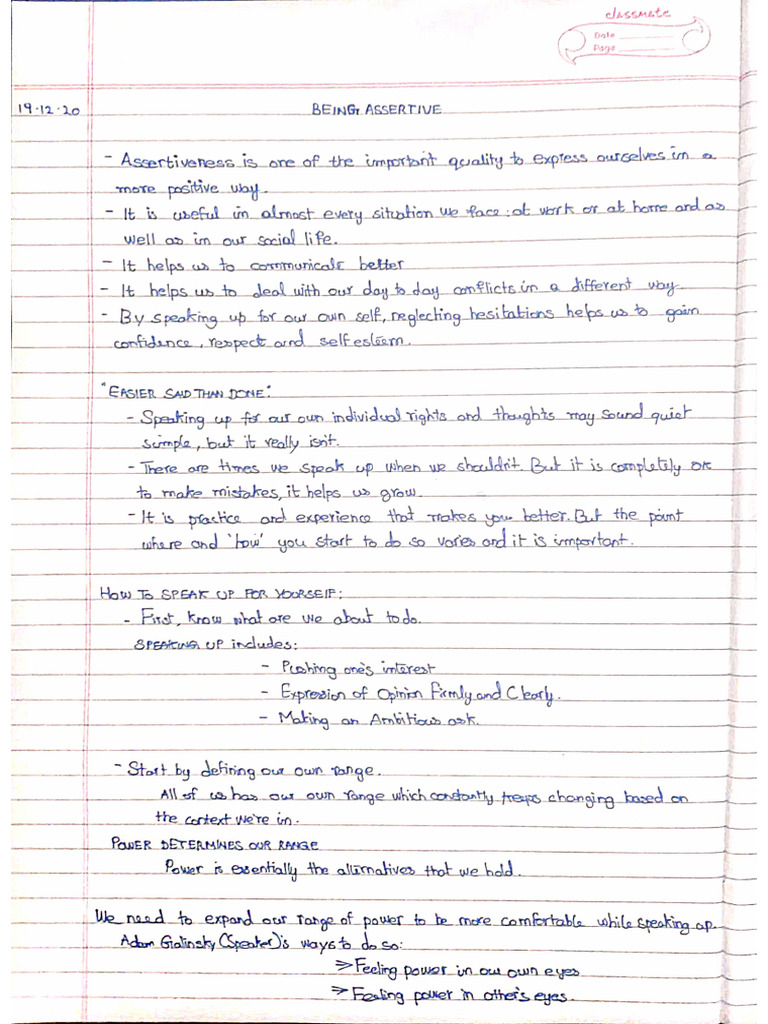 classmate
Date
Page
19.12.20
BEING ASSERTIVE
- Assertiveness is one of the important quality to express ourselves in a
more positive way.
- It is useful in almost every situation we face: at work or at home and as
well as in our social life.
- It helps us to communicate better
- It helps us to deal with our day to day conflicts in a different way.
- By speaking up for our own self, neglecting hesitations helps us to gain
confidence, respect and self esteem.
"EASIER SAID THAN DONE":
- Speaking up for our own individual rights and thoughts may sound quiet
simple, but it really isn't.
- There are times we speak up when we shouldn't. But it is completely OK
to make mistakes, it helps us grow.
- It is practice and experience that makes you better. But the point
where and 'how' you start to do so varies and it is important.
HOW TO SPEAK UP FOR YOURSELF:
- First, know what are we about to do.
SPEAKING UP includes:
- Pushing one's interest
- Expression of Opinion Firmly and Clearly.
- Making an Ambitious ask.
- Start by defining our own range.
All of us has our own range which constantly keeps changing based on
the context we're in.
POWER DETERMINES OUR RANGE
Power is essentially the alternatives that we hold.
We need to expand our range of power to be more comfortable while speaking up.
Adam Galinsky (Speaker)'s ways to do so:
⇒ Feeling power in our own eyes
⇒ Feeling power in other's eyes.